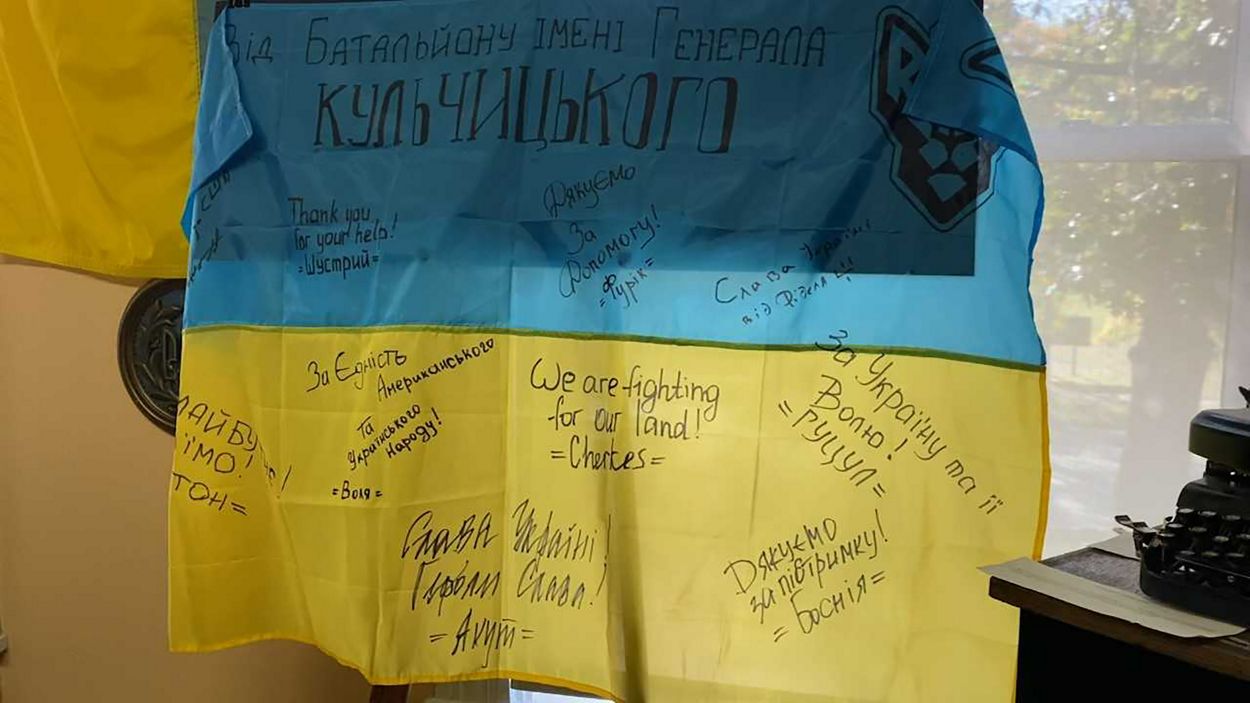 Від Батальйону імені Генерала
Кульчицького
США
Thank you
for your help!
=Шустрий=
Дякуємо
За
Допомогу!
=Фурік=
Слава Україні
від
За Єдність
Американського
та
Українського
Народу!
=Воля=
We are fighting
for our land!
=Cherkes=
За Україну та її
Волю!
=ГУЦУЛ=
ТОН=
Слава Україні!
Героям Слава!
=Акут=
Дякуємо
за підтримку!
=Боснія=